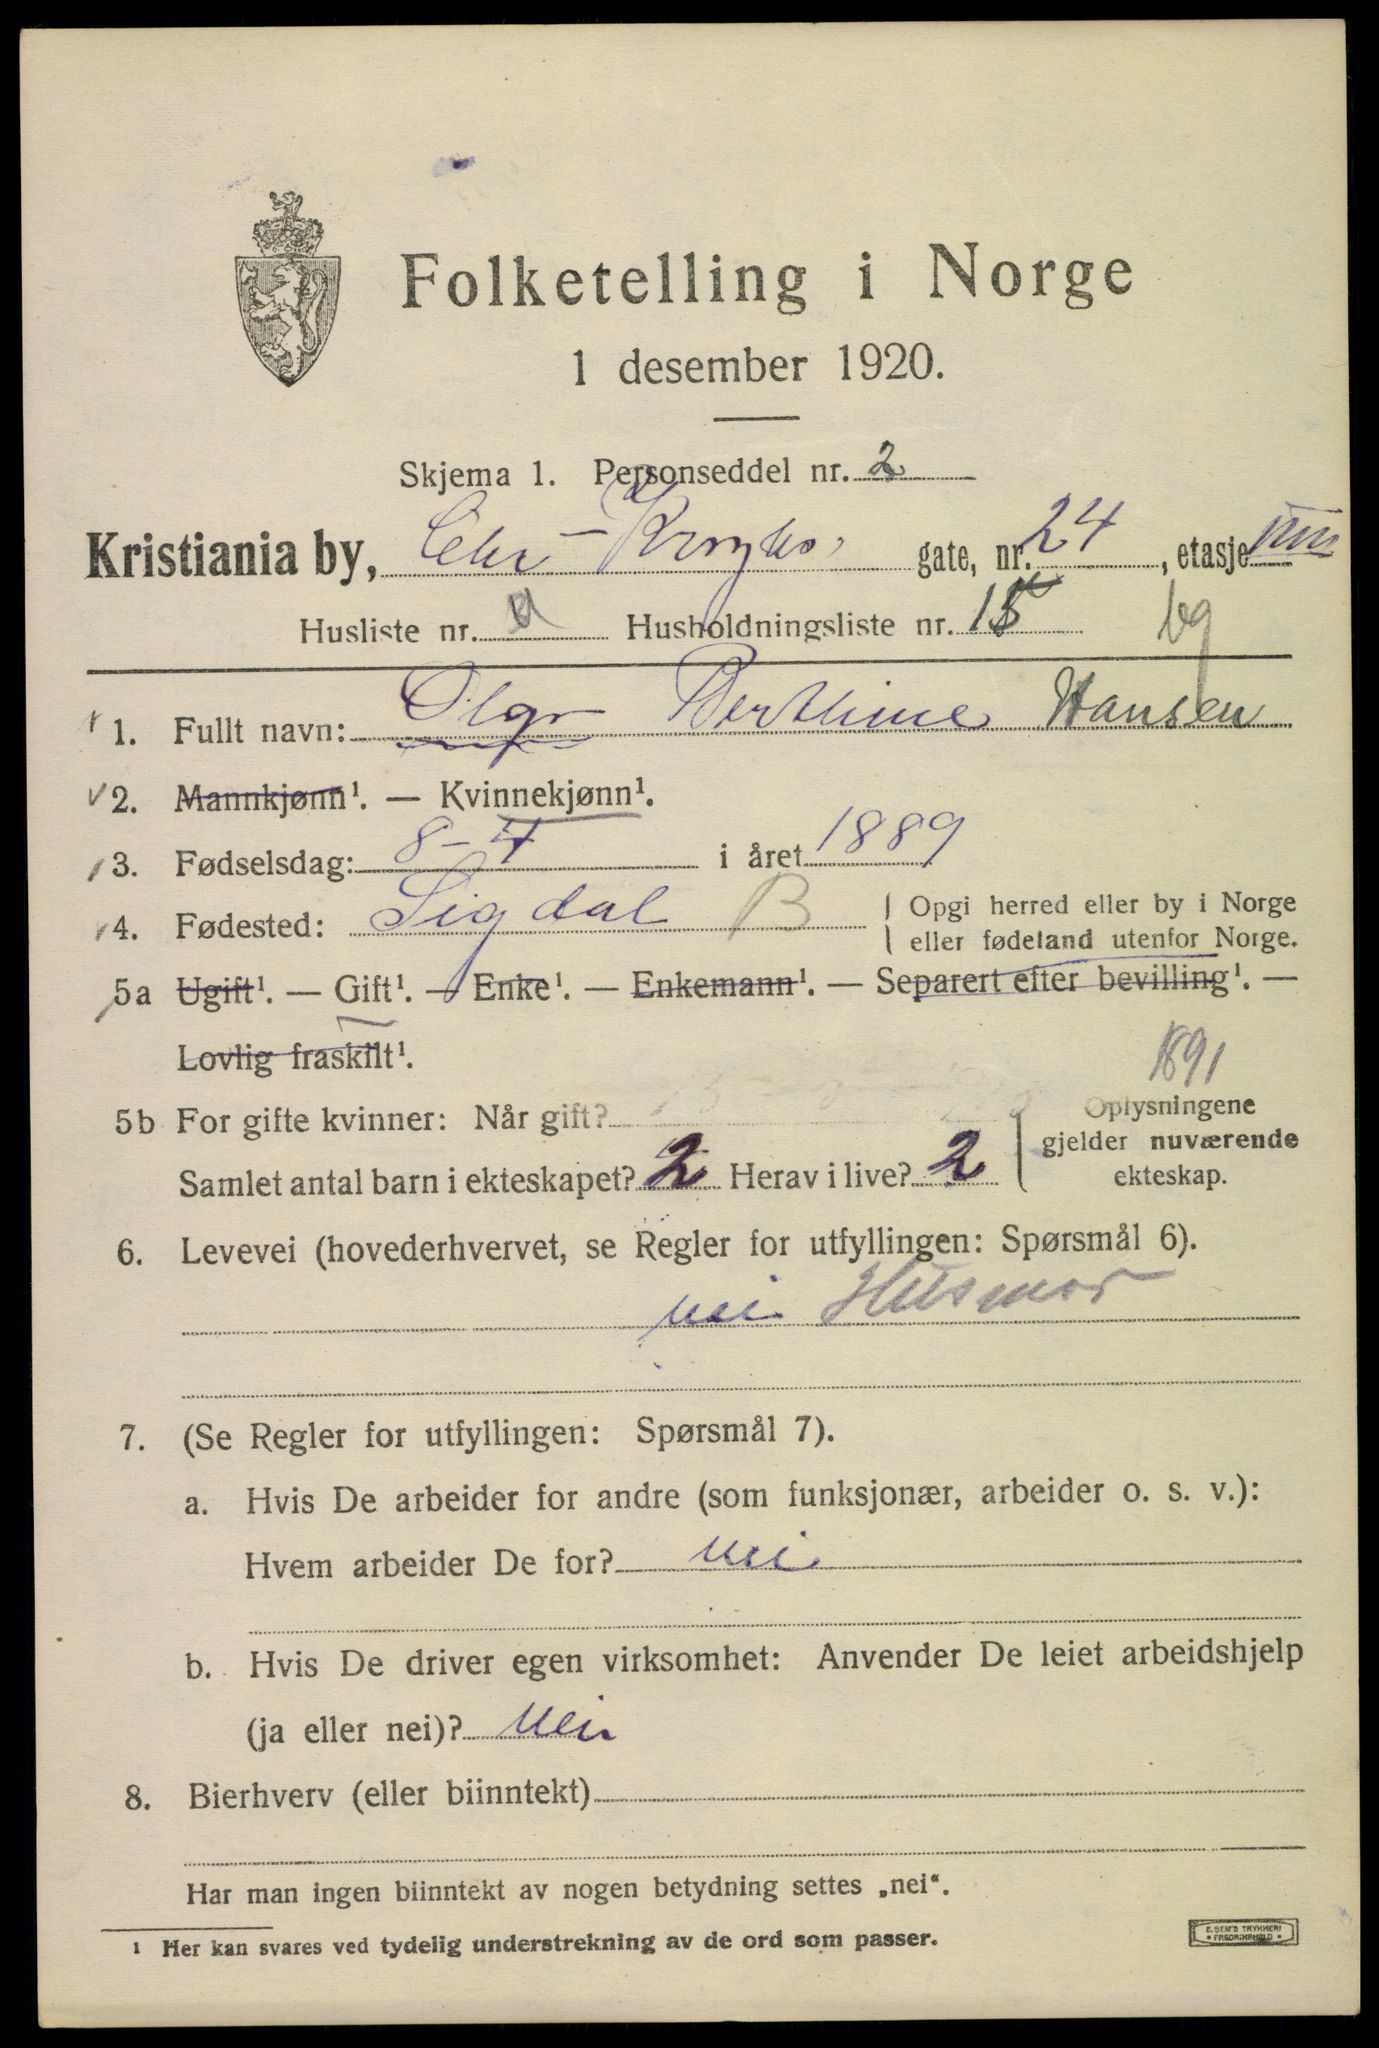 Folketelling i Norge
1 desember 1920.
Skjema 1. Personseddel nr. 2
Kristiania by, Chr Kroghs gate, nr. 24, etasje
Husliste nr. Husholdningsliste nr. 15
1. Fullt navn: Olga Berthine Hansen
2. Mannkjønn¹. — Kvinnekjønn¹.
3. Fødselsdag: 8-4 i året 1889
4. Fødested: Sigdal B Opgi herred eller by i Norge
eller fødeland utenfor Norge.
5a Ugift¹. — Gift¹. — Enke¹. — Enkemann¹. — Separert efter bevilling¹. —
Lovlig fraskilt¹.
1891
5b For gifte kvinner: Når gift? Oplysningene
gjelder nuværende
Samlet antal barn i ekteskapet? 2 Herav i live? 2 ekteskap.
6. Levevei (hovederhvervet, se Regler for utfyllingen: Spørsmål 6).
nei Husmor
7. (Se Regler for utfyllingen: Spørsmål 7).
a. Hvis De arbeider for andre (som funksjonær, arbeider o. s. v.):
Hvem arbeider De for? nei
b. Hvis De driver egen virksomhet: Anvender De leiet arbeidshjelp
(ja eller nei)? Nei
8. Bierhverv (eller biinntekt)
Har man ingen biinntekt av nogen betydning settes „nei“.
¹ Her kan svares ved tydelig understrekning av de ord som passer.
E. SEM'S TRYKKERI
FREDRIKSHALD